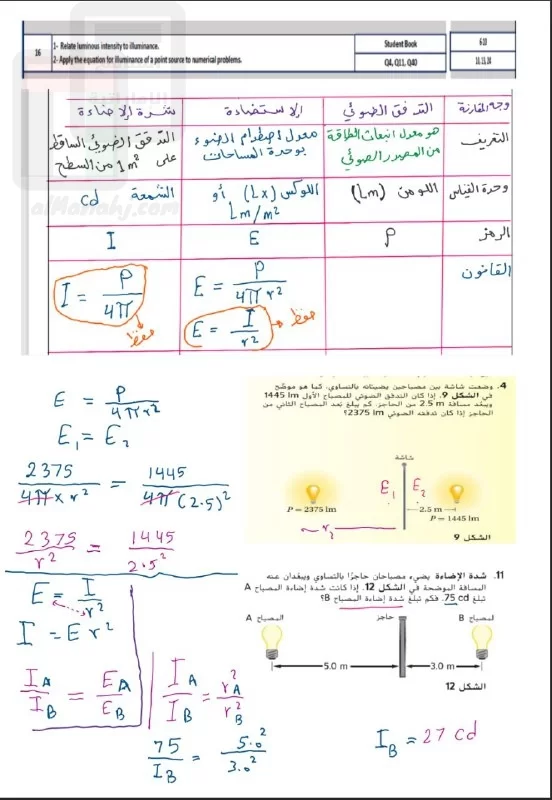 16
1- Relate luminous intensity to illuminance.
2- Apply the equation for illuminance of a point source to numerical problems.
Student Book
Q4, Q11, Q40
وجه المقارنة
التدفق الضوئي
الاستضاءة
شدة الإضاءة
التعريف
هو معدل انبعاث الطاقة
من المصدر الضوئي
معدل اصطدام الضوء
بوحدة المساحات
التدفق الضوئي الساقط
على 1m² من السطح
وحدة القياس
اللومن (Lm)
اللوكس (Lx) أو
Lm/m²
الشمعة Cd
الرمز
P
E
I
القانون
E = P / 4π r²
E = I / r²
حفظ
I = P / 4π
حفظ
almanahj.com
4. وضعت شاشة بين مصباحين يضيئانه بالتساوي، كما هو موضح
في الشكل 9. إذا كان التدفق الضوئي للمصباح الأول 1445 lm
ويبعد مسافة 2.5 m من الحاجز، كم يبلغ بعد المصباح الثاني من
الحاجز إذا كان تدفقه الضوئي 2375 lm؟
شاشة
E₁ E₂
P = 2375 lm
2.5 m
P = 1445 lm
r₂
الشكل 9
E = P / 4πr²
E₁ = E₂
2375 / 4π × r² = 1445 / 4π (2.5)²
2375 / r² = 1445 / 2.5²
11. شدة الإضاءة يضيء مصباحان حاجزًا بالتساوي ويبعدان عنه
المسافة الموضحة في الشكل 12. إذا كانت شدة إضاءة المصباح A
تبلغ 75 cd، فكم تبلغ شدة إضاءة المصباح B؟
المصباح A
حاجز
المصباح B
5.0 m
3.0 m
الشكل 12
E = I / r²
I = E r²
I_A / I_B = E_A / E_B
I_A / I_B = r²_A / r²_B
75 / I_B = 5.0² / 3.0²
I_B = 27 cd